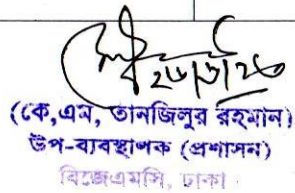 ২৬/৬/২৩
(কে,এম, তানজিলুর রহমান)
উপ-ব্যবস্থাপক (প্রশাসন)
বিজেএমসি, ঢাকা